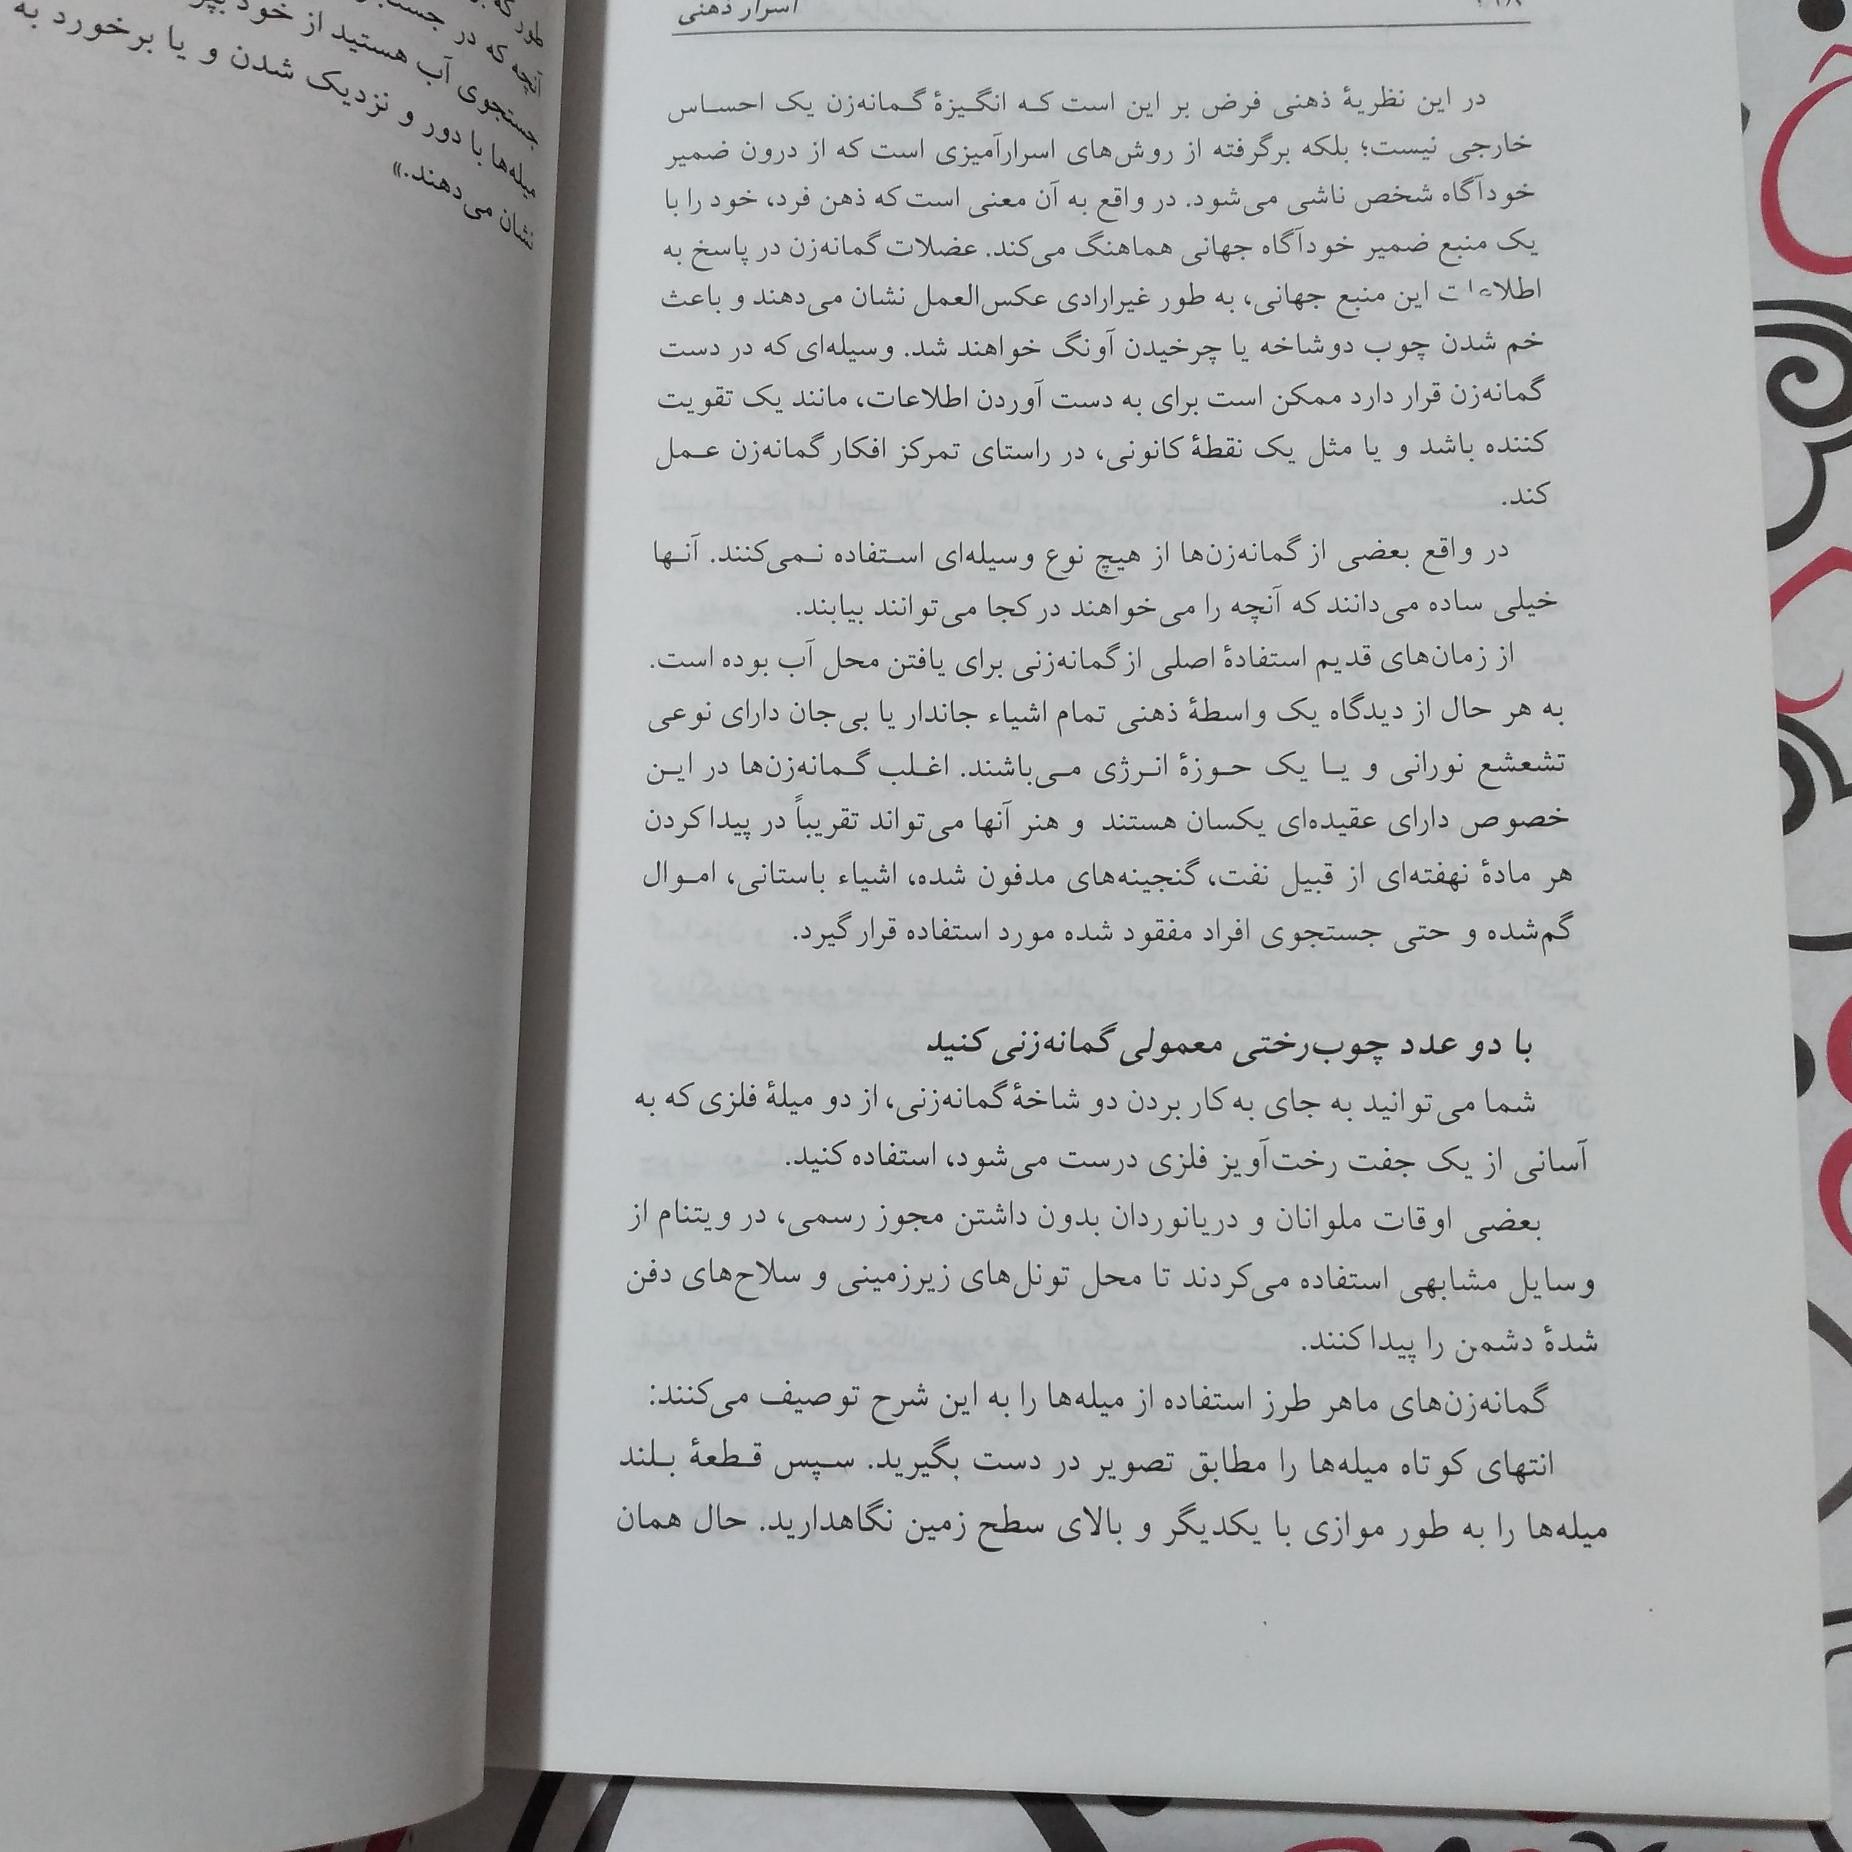 اسرار ذهنی
در این نظریهٔ ذهنی فرض بر این است که انگیزهٔ گمانه‌زن یک احساس
خارجی نیست؛ بلکه برگرفته از روش‌های اسرارآمیزی است که از درون ضمیر
خودآگاه شخص ناشی می‌شود. در واقع به آن معنی است که ذهن فرد، خود را با
یک منبع ضمیر خودآگاه جهانی هماهنگ می‌کند. عضلات گمانه‌زن در پاسخ به
اطلاعات این منبع جهانی، به طور غیرارادی عکس‌العمل نشان می‌دهند و باعث
خم شدن چوب دوشاخه یا چرخیدن آونگ خواهند شد. وسیله‌ای که در دست
گمانه‌زن قرار دارد ممکن است برای به دست آوردن اطلاعات، مانند یک تقویت
کننده باشد و یا مثل یک نقطهٔ کانونی، در راستای تمرکز افکار گمانه‌زن عمل
کند.
در واقع بعضی از گمانه‌زن‌ها از هیچ نوع وسیله‌ای استفاده نمی‌کنند. آنها
خیلی ساده می‌دانند که آنچه را می‌خواهند در کجا می‌توانند بیابند.
از زمان‌های قدیم استفادهٔ اصلی از گمانه‌زنی برای یافتن محل آب بوده است.
به هر حال از دیدگاه یک واسطهٔ ذهنی تمام اشیاء جاندار یا بی‌جان دارای نوعی
تشعشع نورانی و یا یک حوزهٔ انرژی می‌باشند. اغلب گمانه‌زن‌ها در این
خصوص دارای عقیده‌ای یکسان هستند و هنر آنها می‌تواند تقریباً در پیدا کردن
هر مادهٔ نهفته‌ای از قبیل نفت، گنجینه‌های مدفون شده، اشیاء باستانی، اموال
گم‌شده و حتی جستجوی افراد مفقود شده مورد استفاده قرار گیرد.
با دو عدد چوب‌رختی معمولی گمانه‌زنی کنید
شما می‌توانید به جای به کار بردن دو شاخهٔ گمانه‌زنی، از دو میلهٔ فلزی که به
آسانی از یک جفت رخت‌آویز فلزی درست می‌شود، استفاده کنید.
بعضی اوقات ملوانان و دریانوردان بدون داشتن مجوز رسمی، در ویتنام از
وسایل مشابهی استفاده می‌کردند تا محل تونل‌های زیرزمینی و سلاح‌های دفن
شدهٔ دشمن را پیدا کنند.
گمانه‌زن‌های ماهر طرز استفاده از میله‌ها را به این شرح توصیف می‌کنند:
انتهای کوتاه میله‌ها را مطابق تصویر در دست بگیرید. سپس قطعهٔ بلند
میله‌ها را به طور موازی با یکدیگر و بالای سطح زمین نگاهدارید. حال همان
طور که
آنچه که در
جستجوی آب هستید از خود
میله‌ها با دور و نزدیک شدن و یا برخورد به
نشان می‌دهند.»